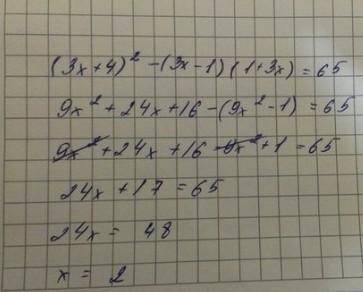 (3x+4)² -(3x-1)(1+3x)=65
9x²+24x+16-(9x²-1)=65
9x²+24x+16-9x²+1=65
24x+17=65
24x= 48
x= 2